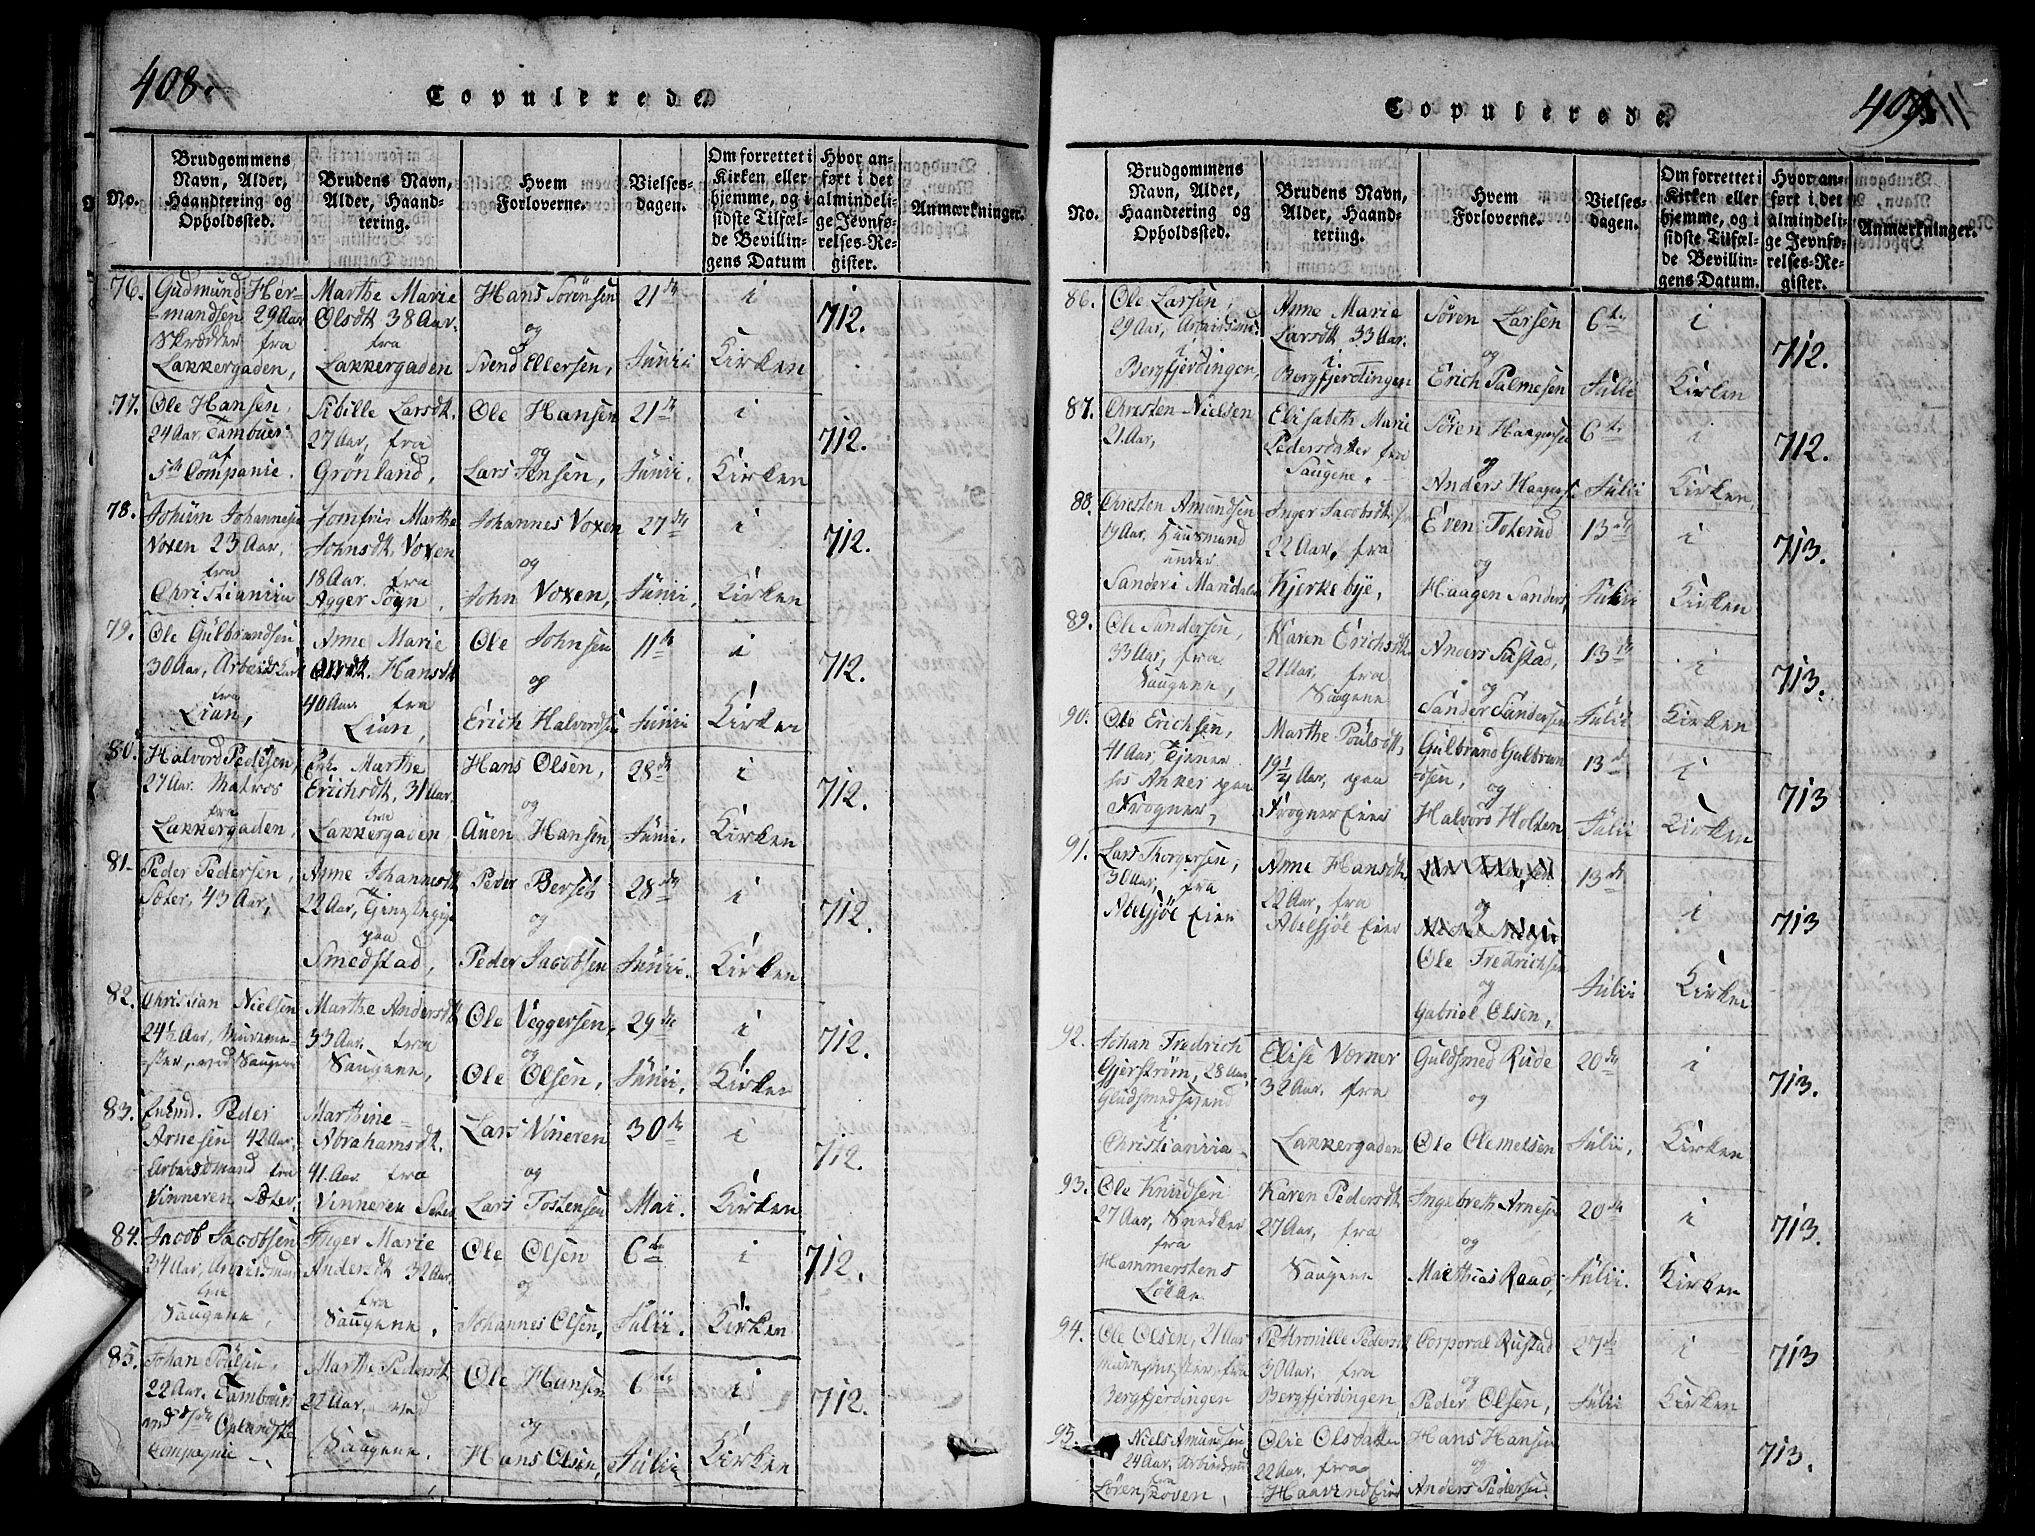 408.
Copulerede
No.
Brudgommens
Navn, Alder,
Haandtering og
Opholdssted.
Brudens Navn,
Alder, Haand-
tering.
Hvem
Forloverne.
Vielses-
dagen.
Om forrettet i
Kirken eller
hjemme, og i
sidste Tilfæl-
de Bevillin-
gens Datum
Hvor an-
ført i det
almindeli-
ge Jevnfø-
relses-Re-
gister.
Anmærkninger.
76.
Gudmund Her-
mandsen 29 Aar
Skrædder fra
Lakkergaden,
Marthe Marie
Olsdtr 38 Aar.
fra
Lakkergaden
Hans Sörensen
og
Svend Ellersen,
21de
Junii
i
Kirken
712.
77.
Ole Hansen,
24 Aar Tambuer
af
5te Companie.
Sibille Larsdt.
27 Aar, fra
Grönland,
Ole Hansen
og
Lars Jensen,
21de
Junii.
i
Kirken
712.
78.
Johum Johannesen
Voxen 23 Aar,
fra
Christiania
Jomfru Marthe
Johnsdt. Voxen
18 Aar. fra
Agger Sogn,
Johannes Voxen
og
John Voxen,
27de
Junii,
i
Kirken
712.
79.
Ole Gulbrandsen
30 Aar, Arbeidskarl
fra
Lian,
Anne Marie
Hansdt
40 Aar fra
Lian,
Ole Johnsen
og
Erich Halvordsen
11te
Junii
i
Kirken
712.
80.
Halvord Pedersen,
27 Aar. Matros
fra
Lakkergaden,
Enke Marthe
Erichsdt, 31 Aar.
fra
Lakkergaden
Hans Olsen,
og
Auen Hansen
28de
Junii.
i
Kirken
712.
81.
Peder Pedersen,
43 Aar,
Anne Johannesdt
22 Aar, Tjenestepige
paa
Smedstad,
Peder Berset
og
Peder Jacobsen
28de
Junii.
i
Kirken
712.
82.
Christian Nielsen
24½ Aar, Murme-
ster, ved Saugene
Marthe Andersdt
33 Aar. fra
Saugene,
Ole Veggersen,
og
Ole Olsen,
29de
Junii,
i
Kirken
712.
83.
Enkmd. Peder
Arnesen 42 Aar,
Arbeidsmand fra
Vinneren Sæter,
Marthine
Abrahamsdt.
41 Aar. fra
Vinneren Sæter
Lars Vineren
og
Lars Tostensen
30de
Mai.
i
Kirken
712.
84.
Jacob Jacobsen
34 Aar, Arbeidsman
fra
Saugene,
Inger Marie
Andersdt 32 Aar.
fra
Saugene,
Ole Olsen
og
Johannes Olsen,
6te
Julii.
i
Kirken
712.
85.
Johan Poulsen,
22 Aar. Tambour
ved Oplandske
Compagnie
Marthe Pedersdt
22 Aar, ved
Saugene.
Ole Hansen
og
Hans Olsen,
6te
Julii
i
Kirken
712.
409.
Copulerede.
No.
Brudgommens
Navn, Alder,
Haandtering og
Opholdssted.
Brudens Navn,
Alder, Haand-
tering.
Hvem
Forloverne.
Vielses-
dagen.
Om forrettet i
Kirken eller
hjemme, og i
sidste Tilfæl-
de Bevillin-
gens Datum.
Hvor an-
ført i det
almindeli-
ge Jevnfø-
relses-Re-
gister.
Anmærkninger.
86.
Ole Larsen,
29 Aar, Arbeidsmd
i
Bergfjerdingen,
Anne Marie
Larsdt 33 Aar.
i
Bergfjerdingen
Sören Larsen
og
Erich Palmesen
6te
Julii
i
Kirken
712.
87.
Christen Nielsen
21 Aar,
Elisabeth Marie
Pedersdatter fra
Saugene,
Sören Haagensen
og
Anders Haagens.
6te
Julii
i
Kirken,
712.
88.
Christen Amundsen
19 Aar. Huusmand
under
Sander i Maridalen
Inger Jacobsdt
22 Aar, fra
Kjerkebye,
Even Toterud
og
Haagen Sanders
13de
Julii
i
Kirken
713.
89.
Ole Sandersen,
33 Aar, fra
Saugene,
Karen Erichsdt.
21 Aar, fra
Saugene
Anders Sustad,
og
Sander Sandersen
13de
Julii
i
Kirken
713.
90.
Ole Erichsen,
41 Aar, Tjener
hos Anker paa
Frogner,
Marthe Poulsdtr,
19¼ Aar, paa
Frogner Eier
Gulbrand Gulbran-
dsen,
og
Halvors Holten
13de
Julii
i
Kirken
713
91.
Lars Thorgersen,
30 Aar, fra
Abelsjöe Eier
Anne Hansdt.
22 Aar, fra
Abelsjöe Eier
og
Ole Fredrichsen
og
Gabriel Olsen,
13de
Julii
i
Kirken
713
92.
Johan Fredrich
Gjerström, 28 Aar,
Guldsmedsvend
i
Christiania
Elise Værner
32 Aar. fra
Lakkergaden
Guldsmed Rude
og
Ole Clemetsen
20de
Julii,
i
Kirken
713.
93.
Ole Knudsen
27 Aar, Snedker
fra
Hammerstens
Lökke
Karen Pedersdt
27 Aar, fra
Saugene
Ingebreth Arnesen
og
Matthias Raad,
20de
Julii.
i
Kirken
713.
94.
Ole Olsen, 21 Aar
Murmester fra
Bergfjerdingen
Pethronille Pedersdt
30 Aar, fra
Bergfjerdingen
Corporal Rustad
og
Peder Olsen,
27de
Julii
i
Kirken
713
95.
Niels Amundsen
24 Aar, Arbeidsmd
fra
Lörenskoven,
Olie Olsdatter
22 Aar. fra
Haavind Eier
Hans Hansen
og
Anders Pedersen
713.